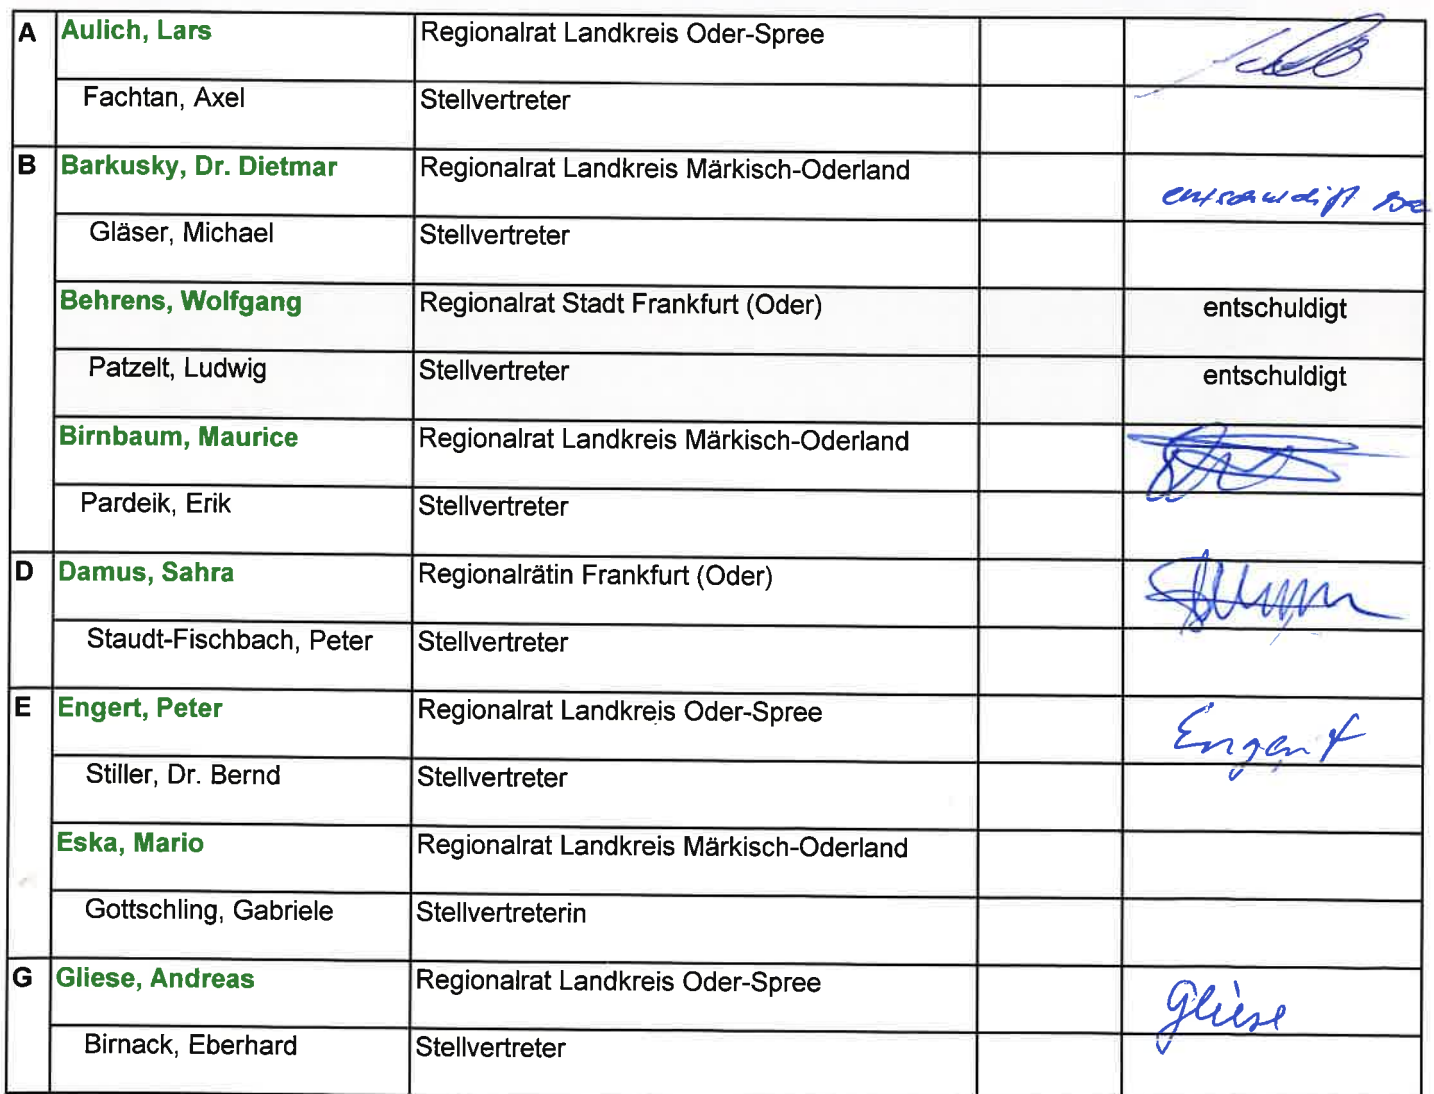 A Aulich, Lars Regionalrat Landkreis Oder-Spree
Fachtan, Axel Stellvertreter
B Barkusky, Dr. Dietmar Regionalrat Landkreis Märkisch-Oderland entschuldigt
Gläser, Michael Stellvertreter
Behrens, Wolfgang Regionalrat Stadt Frankfurt (Oder) entschuldigt
Patzelt, Ludwig Stellvertreter entschuldigt
Birnbaum, Maurice Regionalrat Landkreis Märkisch-Oderland
Pardeik, Erik Stellvertreter
D Damus, Sahra Regionalrätin Frankfurt (Oder)
Staudt-Fischbach, Peter Stellvertreter
E Engert, Peter Regionalrat Landkreis Oder-Spree Engert
Stiller, Dr. Bernd Stellvertreter
Eska, Mario Regionalrat Landkreis Märkisch-Oderland
Gottschling, Gabriele Stellvertreterin
G Gliese, Andreas Regionalrat Landkreis Oder-Spree Gliese
Birnack, Eberhard Stellvertreter